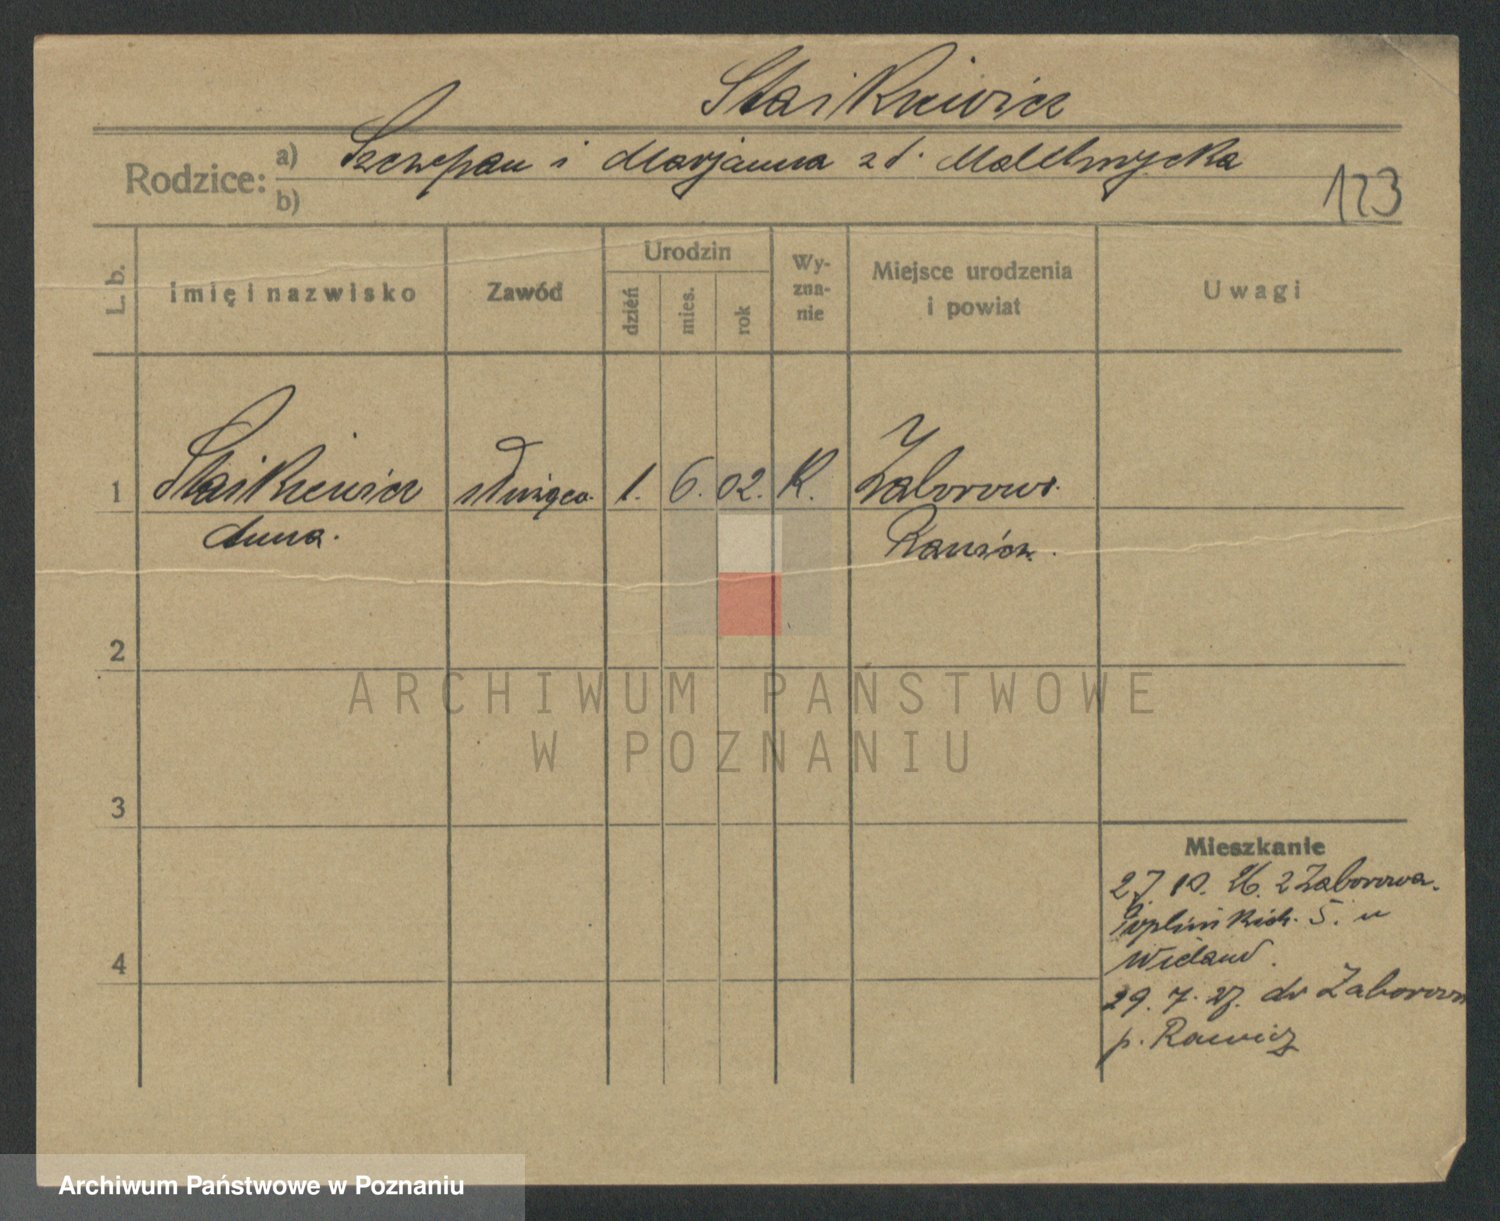 Staśkiewicz
Rodzice: a) Szczepan i Marjanna zd.
b)
123
L. b.
imię i nazwisko
Zawód
Urodzin
dzień
mies.
rok
Wy-
zna-
nie
Miejsce urodzenia
i powiat
Uwagi
1 Staśkiewicz służąca 1. 6. 02. K. Zaborowo
Anna. Rawicz.
2
3
4
Mieszkanie
27. 10. 26. z Zaborowa.
5. u
Wieland.
29. 7. 27. do Zaborowo
p. Rawicz
ARCHIWUM PAŃSTWOWE
W POZNANIU
Archiwum Państwowe w Poznaniu